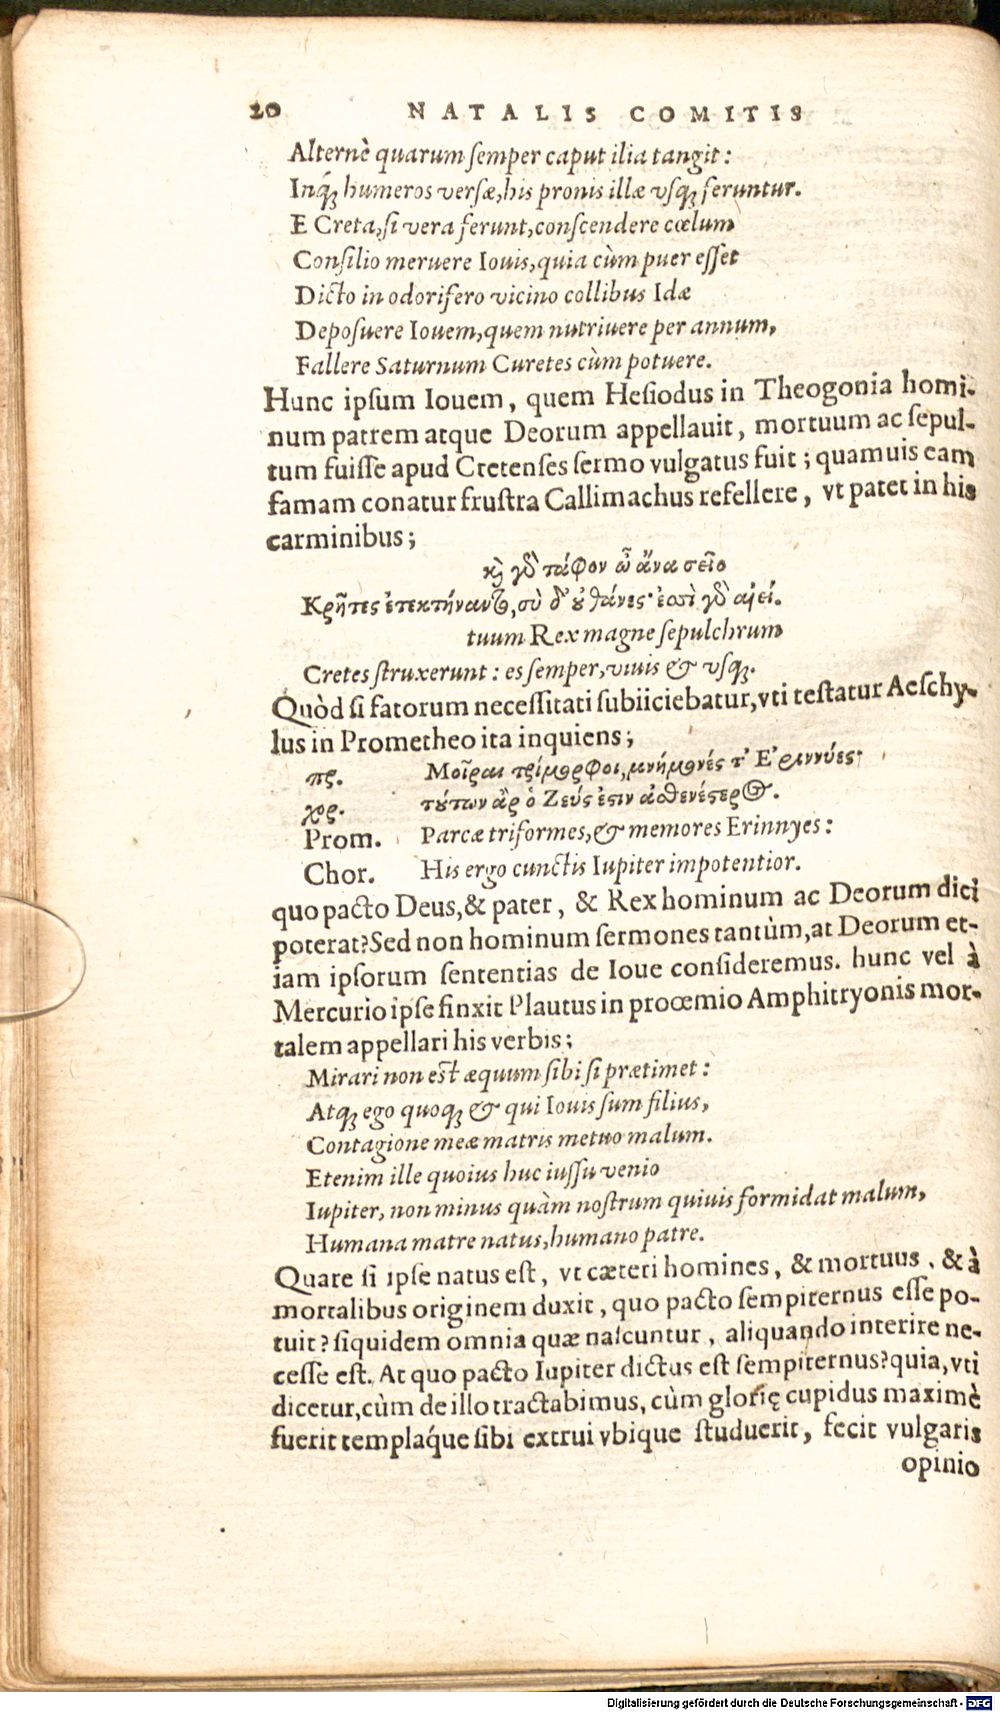 20 NATALIS COMITIS
Alternè quarum ſemper caput ilia tangit:
Inq́; humeros verſæ, his pronis illæ vſq; feruntur.
E Creta, ſi vera ferunt, conſcendere cœlum
Conſilio meruere Iouis, quia cùm puer eſſèt
Dicto in odorifero vicino collibus Idæ
Depoſuere Iouem, quem nutriuere per annum,
Fallere Saturnum Curetes cùm potuere.
Hunc ipſum Iouem, quem Heſiodus in Theogonia homi-
num patrem atque Deorum appellauit, mortuum ac ſepul-
tum fuiſſe apud Cretenſes ſermo vulgatus fuit; quamuis eam
famam conatur fruſtra Callimachus refellere, vt patet in his
carminibus;
κỳ γδ̀ τάφον ὦ ἄνα σεῖο
Κρῆτες ἐτεκτήναντο, σὺ δ' ȣ̓ θάνες· ἐσσὶ γδ̀ αἰεί.
tuum Rex magne ſepulchrum
Cretes ſtruxerunt: es ſemper, viuis & vſq;.
Quòd ſi fatorum neceſſitati ſubiiciebatur, vti teſtatur Aeſchy-
lus in Prometheo ita inquiens;
πρ. Μοῖραι τρίμορφοι, μνήμονές τ' Ἐριννύες·
χορ. τȣ́των ἂρ ὁ Ζεύς ἐϛιν ἀσθενέϛερος.
Prom. Parcæ triformes, & memores Erinnyes:
Chor. His ergo cunctis Iupiter impotentior.
quo pacto Deus, & pater, & Rex hominum ac Deorum dici
poterat? Sed non hominum ſermones tantùm, at Deorum et-
iam ipſorum ſententias de Ioue conſideremus. hunc vel à
Mercurio ipſe finxit Plautus in proœmio Amphitryonis mor-
talem appellari his verbis;
Mirari non eſt æquum ſibi ſi prætimet:
Atq; ego quoq; & qui Iouis ſum filius,
Contagione meæ matris metuo malum.
Etenim ille quoius huc iuſſu venio
Iupiter, non minus quàm noſtrum quiuis formidat malum,
Humana matre natus, humano patre.
Quare ſi ipſe natus eſt, vt cæteri homines, & mortuus, & à
mortalibus originem duxit, quo pacto ſempiternus eſſe po-
tuit? ſiquidem omnia quæ naſcuntur, aliquando interire ne-
ceſſe eſt. At quo pacto Iupiter dictus eſt ſempiternus? quia, vti
dicetur, cùm de illo tractabimus, cùm glorię cupidus maximè
fuerit templáque ſibi extrui vbique ſtuduerit, fecit vulgaris
opinio
Digitalisierung gefördert durch die Deutsche Forschungsgemeinschaft - DFG